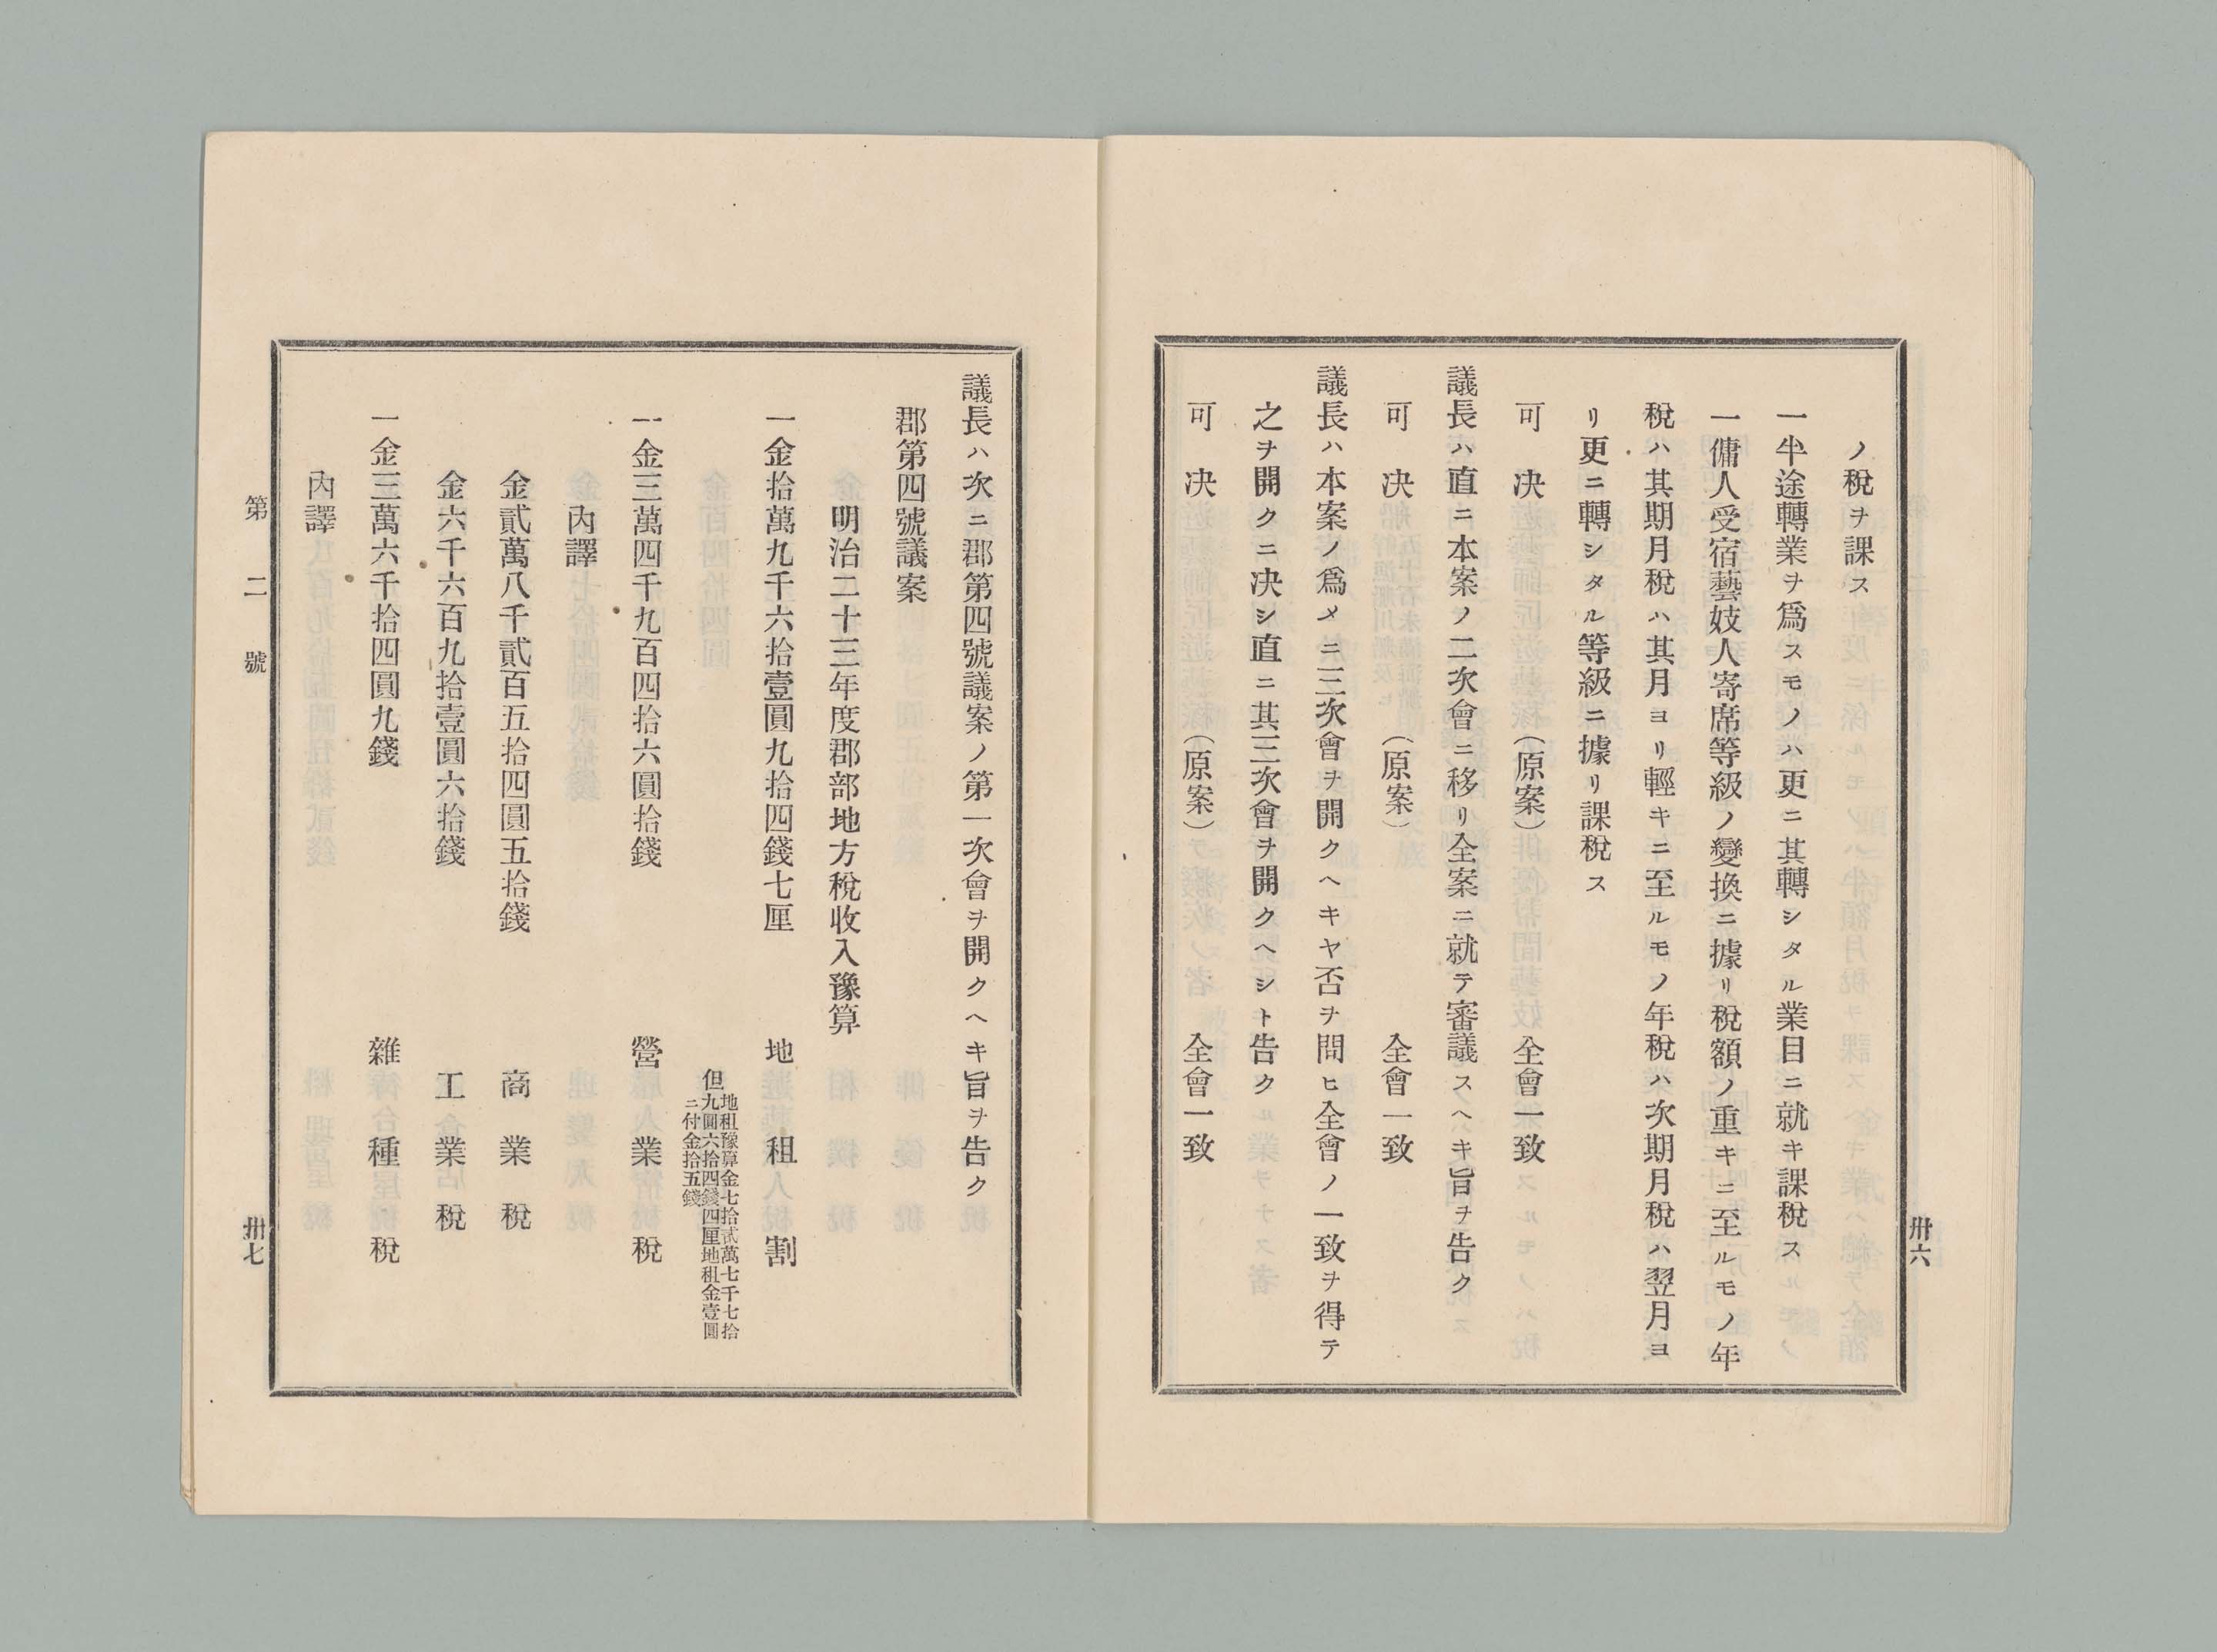 ノ稅ヲ課ス
一半途轉業ヲ爲スモノハ更ニ其轉シタル業目ニ就キ課稅ス
一傭人受宿藝妓人寄席等級ノ變換ニ據リ稅額ノ重キニ至ルモノ年
稅ハ其期月稅ハ其月ヨリ輕キニ至ルモノ年稅ハ次期月稅ハ翌月ヨ
リ更ニ轉シタル等級ニ據リ課稅ス
可決 (原案) 全會一致
議長ハ直ニ本案ノ二次會ニ移リ全案ニ就テ審議スヘキ旨ヲ告ク
可決 (原案) 全會一致
議長ハ本案ノ爲メニ三次會ヲ開クヘキヤ否ヲ問ヒ全會ノ一致ヲ得テ
之ヲ開クニ决シ直ニ其三次會ヲ開クヘシト告ク
可決 (原案) 全會一致
卅六
議長ハ次ニ郡第四號議案ノ第一次會ヲ開クヘキ旨ヲ告ク
郡第四號議案
明治二十三年度郡部地方稅收入豫算
一金拾萬九千六拾壹圓九拾四錢七厘 地租割
但地租豫算金七拾貳萬七千七拾
九圓六拾四錢四厘地租金壹圓
ニ付金拾五錢
一金三萬四千九百四拾六圓拾錢 營業稅
內譯
金貳萬八千貳百五拾四圓五拾錢 商業稅
金六千六百九拾壹圓六拾錢 工業稅
一金三萬六千拾四圓九錢 雜種稅
內譯
第二號 卅七